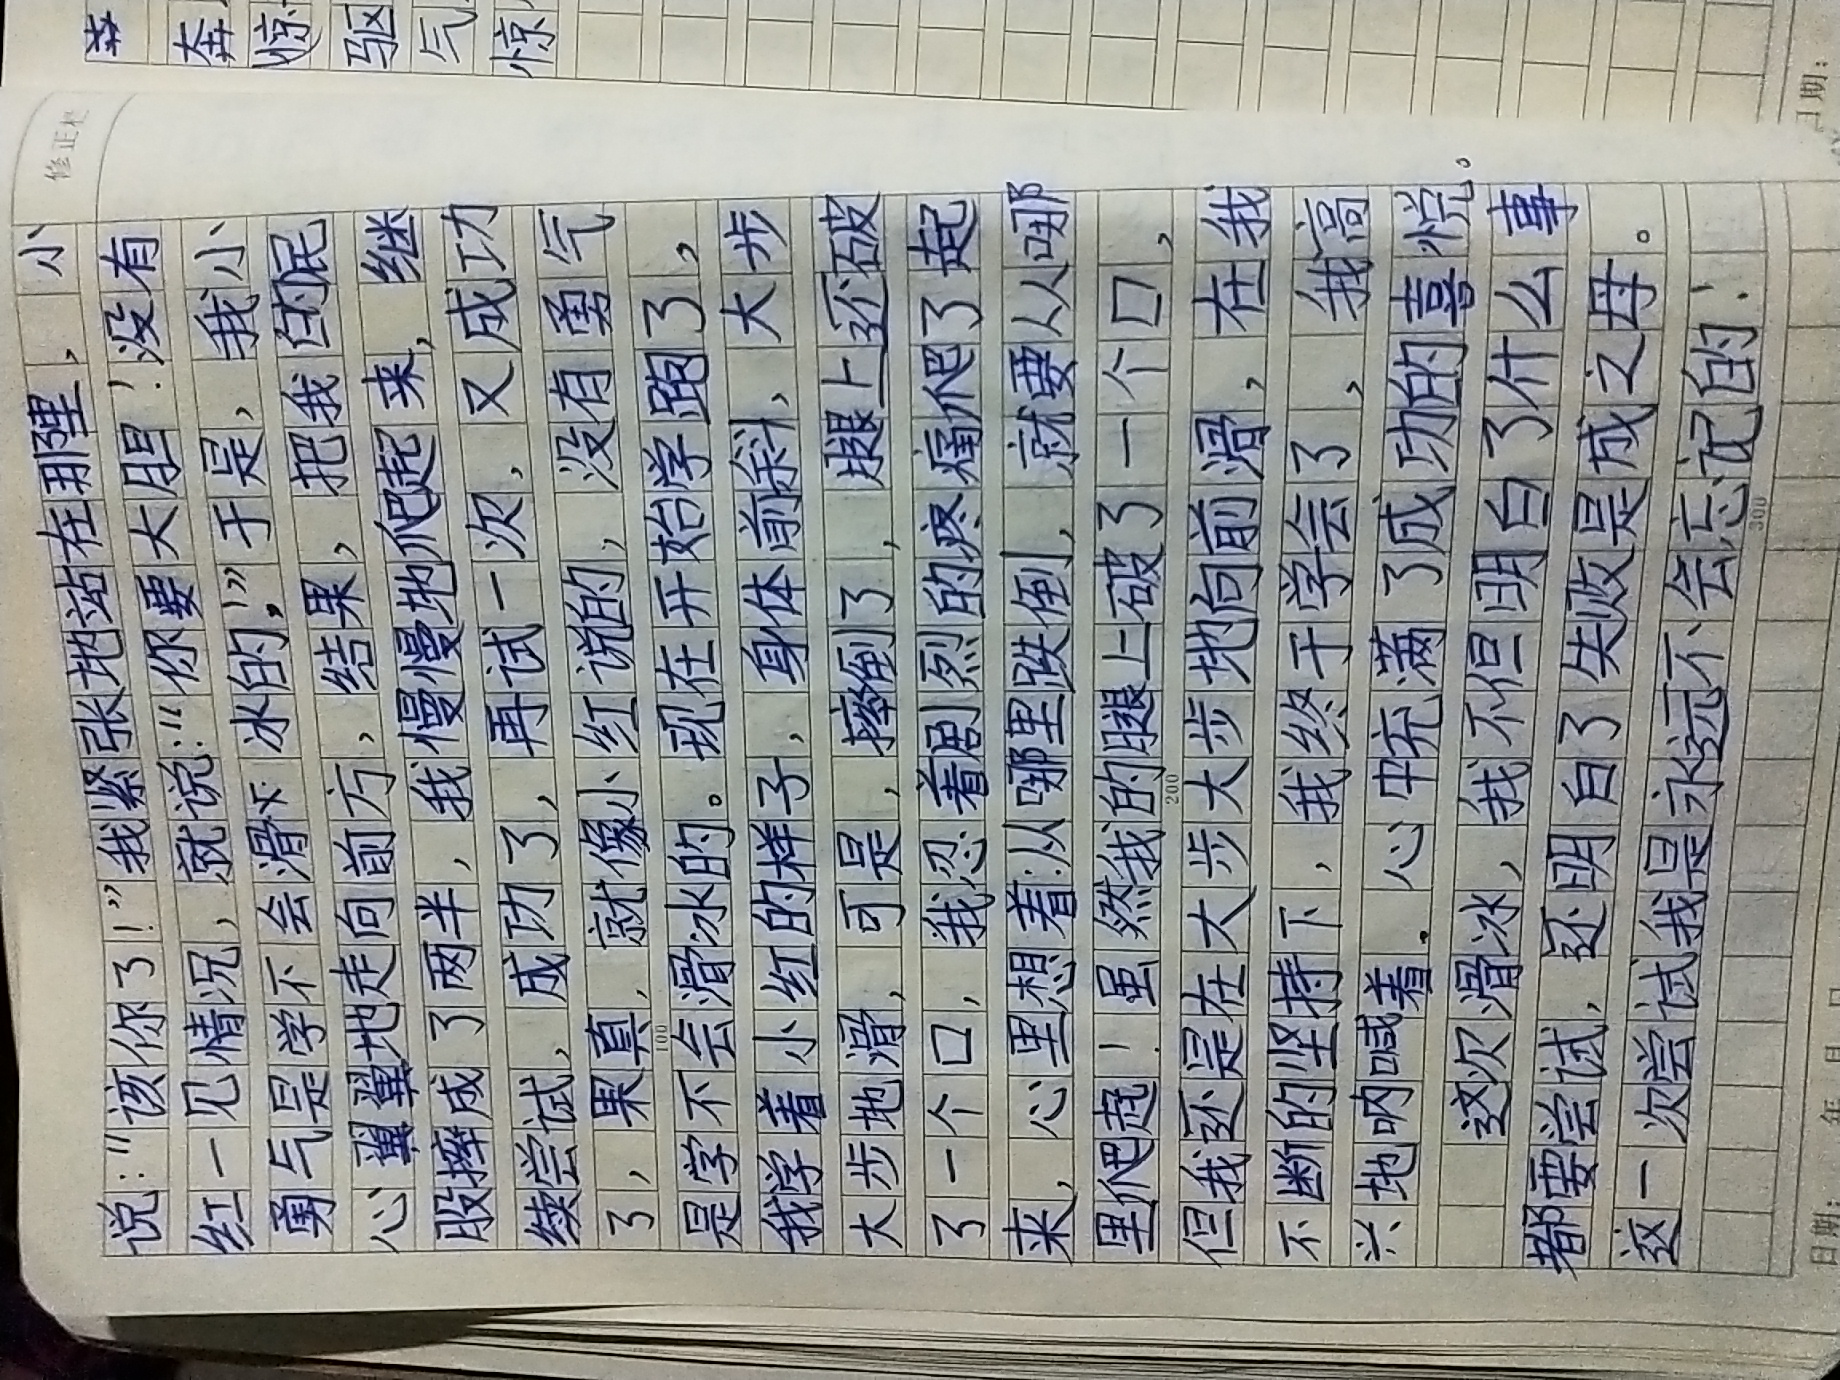 说：“该你了！”我紧张地站在那里，小
红一见情况，就说：“你要大胆！没有
勇气是学不会滑冰的！”于是，我小
心翼翼地走向前方，结果，把我的屁
股摔成了两半，我慢慢地爬起来，继
续尝试，成功了，再试一次，又成功
了，果真，就像小红说的，没有勇气
是学不会滑冰的。现在开始学跑了，
我学着小红的样子，身体前斜，大步
大步地滑，可是，摔倒了，腿上还破
了一个口，我忍着剧烈的疼痛爬了起
来，心里想着：从哪里跌倒，就要从哪
里爬起！虽然我的腿上破了一个口，
但我还是在大步大步地向前滑，在我
不断的坚持下，我终于学会了，我高
兴地呐喊着。心中充满了成功的喜悦。
这次滑冰，我不但明白了什么事
都要尝试，还明白了失败是成之母。
这一次尝试我是永远不会忘记的！
修正栏
100
200
300
日期：
年
月
日
奔
惊
驱
气
惊
日期：